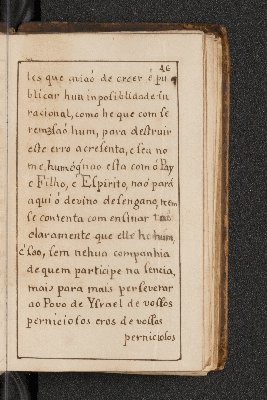 46
les que aviaõ de creer é pu
blicar hua inposiblidade in
racional, como he que com se
rem 3 saõ hum, para destruir
este erro acresenta, e seu no
me, hum óq̃ naõ esta com ó Pay
e Filho, é Espirito, naó pará
aqui ó devino desengano, nem
se contenta com ensinar taõ
claramente que elle he hum,
é Soo, sem nehua companhia
de quem participe na sencia,
mais para mais perseverar
ao Povo de Ysrael de vossos
perniciosos eros de vossos
perniciosos